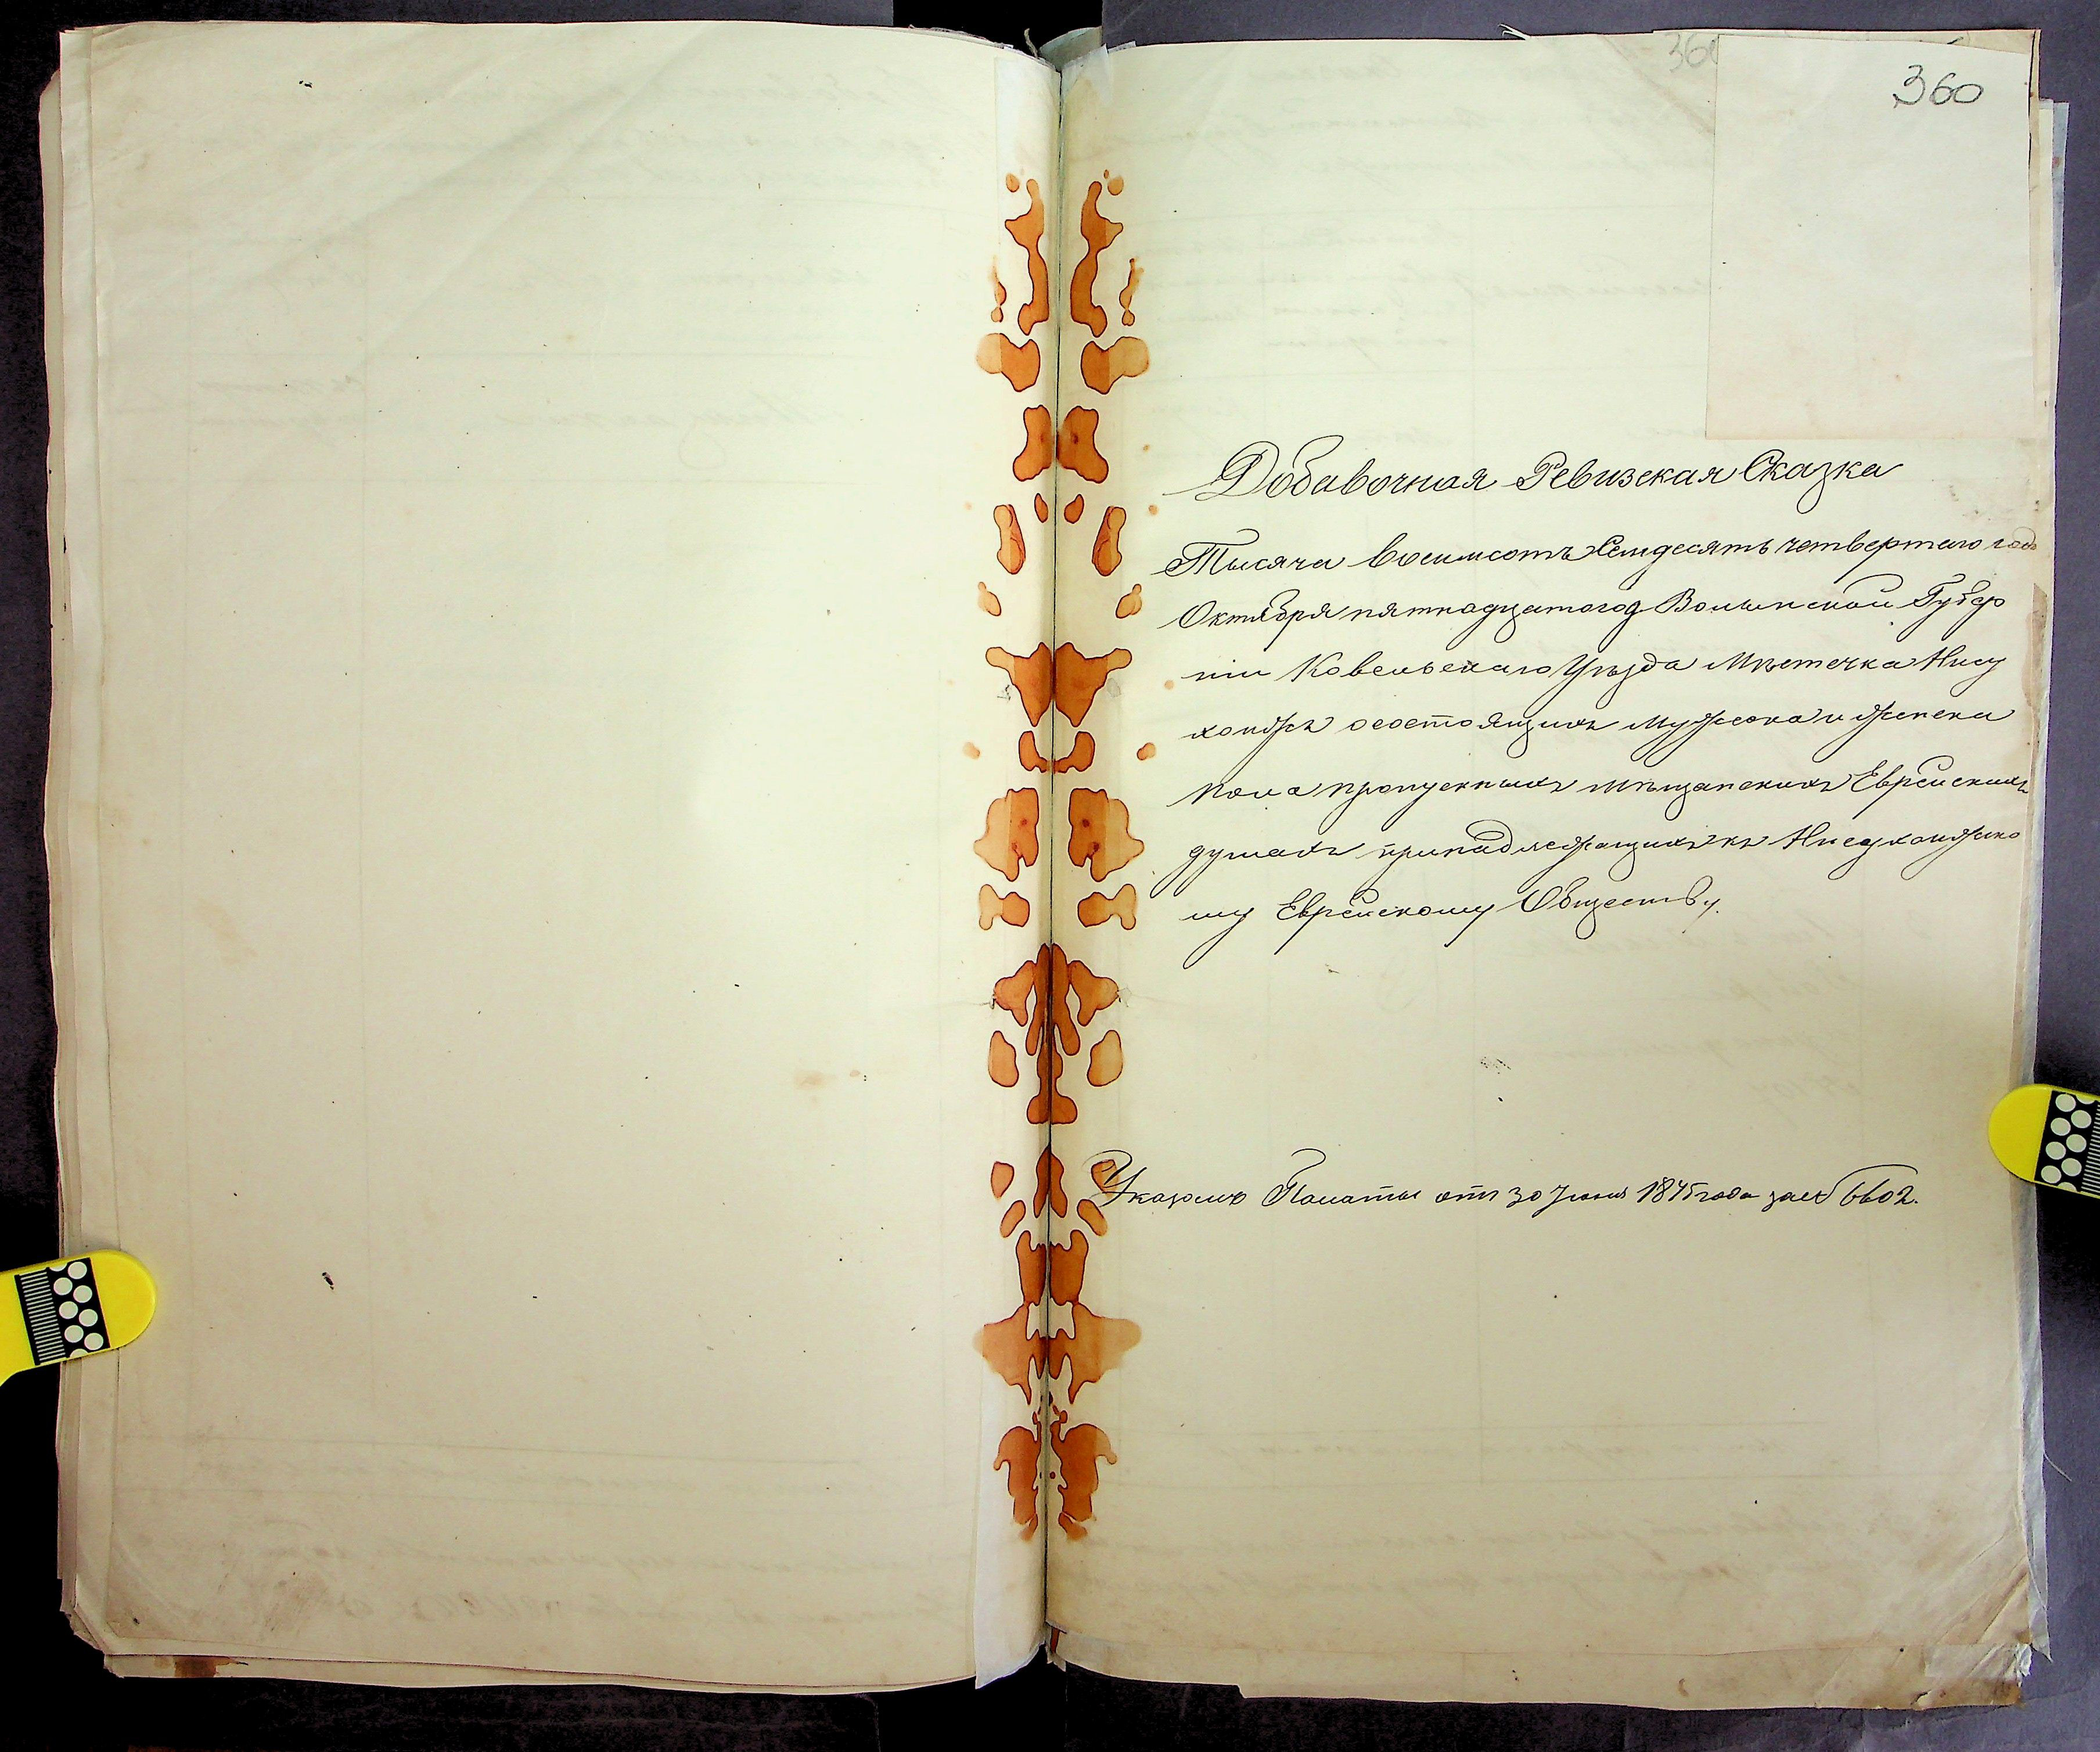 360
360
Добавочная Ревизская Сказка
Тысяча восемсотъ Семдесять четвертаго года
Октября пятнадцатогод Волынской Губер
ніи Ковельскаго Уѣзда Мѣстечка Несу
хоижъ осостоящихъ мужеска и женска
пола пропускныхъ мѣщанскихъ Еврейскихъ
душахъ принадлежащихъ къ Несухоижско
му Еврейскому Обществу.
Указомъ Палаты отъ 30 Іюня 1875 года за № 6602.